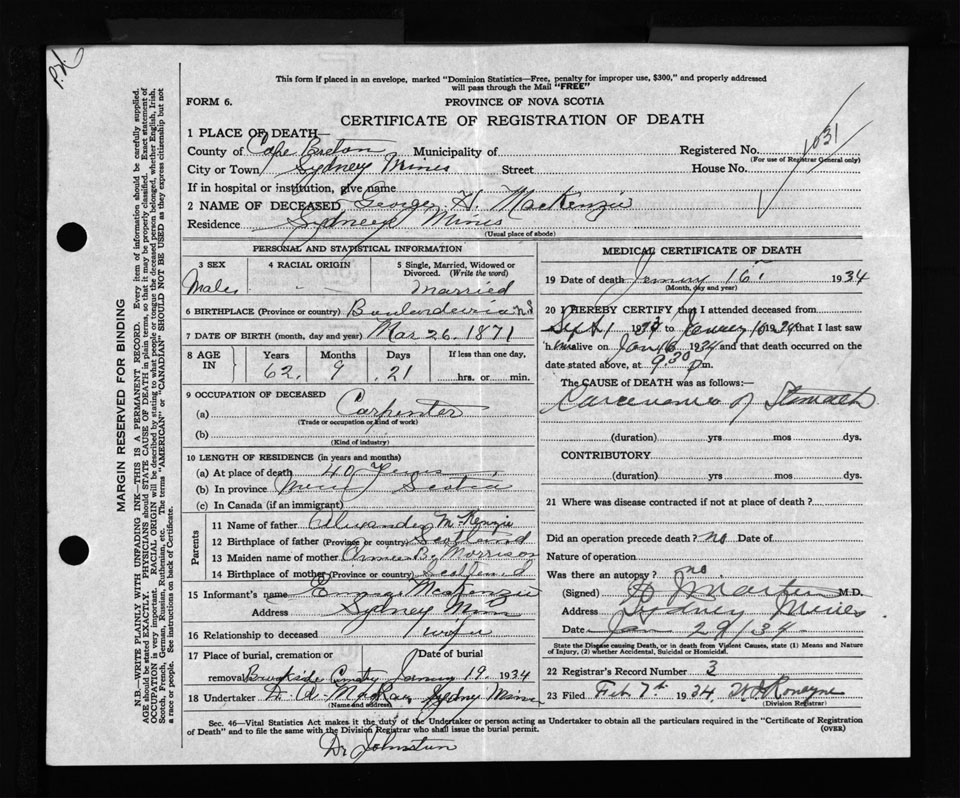 P.H.
This form if placed in an envelope, marked "Dominion Statistics—Free, penalty for improper use, $300," and properly addressed
will pass through the Mail "FREE"
FORM 6.
PROVINCE OF NOVA SCOTIA
CERTIFICATE OF REGISTRATION OF DEATH
1031
1 PLACE OF DEATH—
County of Cape Breton Municipality of Registered No.
(For use of Registrar General only)
City or Town Sydney Mines Street House No.
If in hospital or institution, give name
2 NAME OF DECEASED George H. MacKenzie
Residence Sydney Mines
(Usual place of abode)
PERSONAL AND STATISTICAL INFORMATION
3 SEX 4 RACIAL ORIGIN 5 Single, Married, Widowed or Divorced. (Write the word)
Male - - Married
6 BIRTHPLACE (Province or country) N.S
7 DATE OF BIRTH (month, day and year) Mar 26. 1871
8 AGE IN Years Months Days If less than one day,
62. 9 21 hrs. or min.
9 OCCUPATION OF DECEASED
(a) Carpenter
(Trade or occupation or kind of work)
(b)
(Kind of industry)
10 LENGTH OF RESIDENCE (in years and months)
(a) At place of death 40 Years
(b) In province Scotia
(c) In Canada (if an immigrant)
Parents
11 Name of father Alexander McKenzie
12 Birthplace of father (Province or country) Scotland
13 Maiden name of mother B. Morrison
14 Birthplace of mother (Province or country) Scotland
15 Informant's name Emma MacKenzie
Address Sydney Mines
16 Relationship to deceased wife
17 Place of burial, cremation or removal Date of burial
Brookside 19. 1934
18 Undertaker A. MacRae, Sydney Mines
(Name and address)
MEDICAL CERTIFICATE OF DEATH
19 Date of death 16" 1934
(Month, day and year)
20 I HEREBY CERTIFY that I attended deceased from
Sept 1 1933 to 16 1934 that I last saw
him alive on Jan 16 1934 and that death occurred on the
date stated above, at 9.30 p.m.
The CAUSE OF DEATH was as follows:—
Carcinoma of Stomach
(duration) yrs mos dys.
CONTRIBUTORY
(duration) yrs mos dys.
21 Where was disease contracted if not at place of death?
Did an operation precede death? no Date of
Nature of operation
Was there an autopsy? no
(Signed) M.D.
Address Sydney Mines
Date Jan 29/34
State the Disease causing Death, or in death from Violent Causes, state (1) Means and Nature
of Injury, (2) whether Accidental, Suicidal or Homicidal.
22 Registrar's Record Number 3
23 Filed Feb 7th 1934
(Division Registrar)
Sec. 46—Vital Statistics Act makes it the duty of the Undertaker or person acting as Undertaker to obtain all the particulars required in the "Certificate of Registration
of Death" and to file the same with the Division Registrar who shall issue the burial permit.
(OVER)
Dr Johnston
MARGIN RESERVED FOR BINDING
N.B.—WRITE PLAINLY WITH UNFADING INK—THIS IS A PERMANENT RECORD. Every item of information should be carefully supplied.
AGE should be stated EXACTLY. PHYSICIANS should STATE CAUSE OF DEATH in plain terms, so that it may be properly classified. Exact statement of
OCCUPATION is very important. RACIAL ORIGIN will be described by stating to what people or tongue the deceased person belonged, whether English, Irish,
Scotch, French, German, Russian, Ruthenian, etc. The terms "AMERICAN" or "CANADIAN" SHOULD NOT BE USED as they express citizenship but not
a race or people. See instructions on back of Certificate.